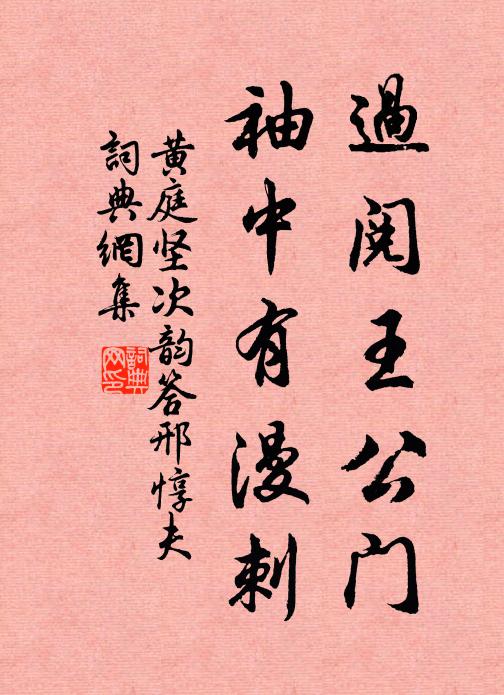 過閱王公門
袖中有漫刺
黄庭坚次韵答邢惇夫
詞典網集
詞典網印